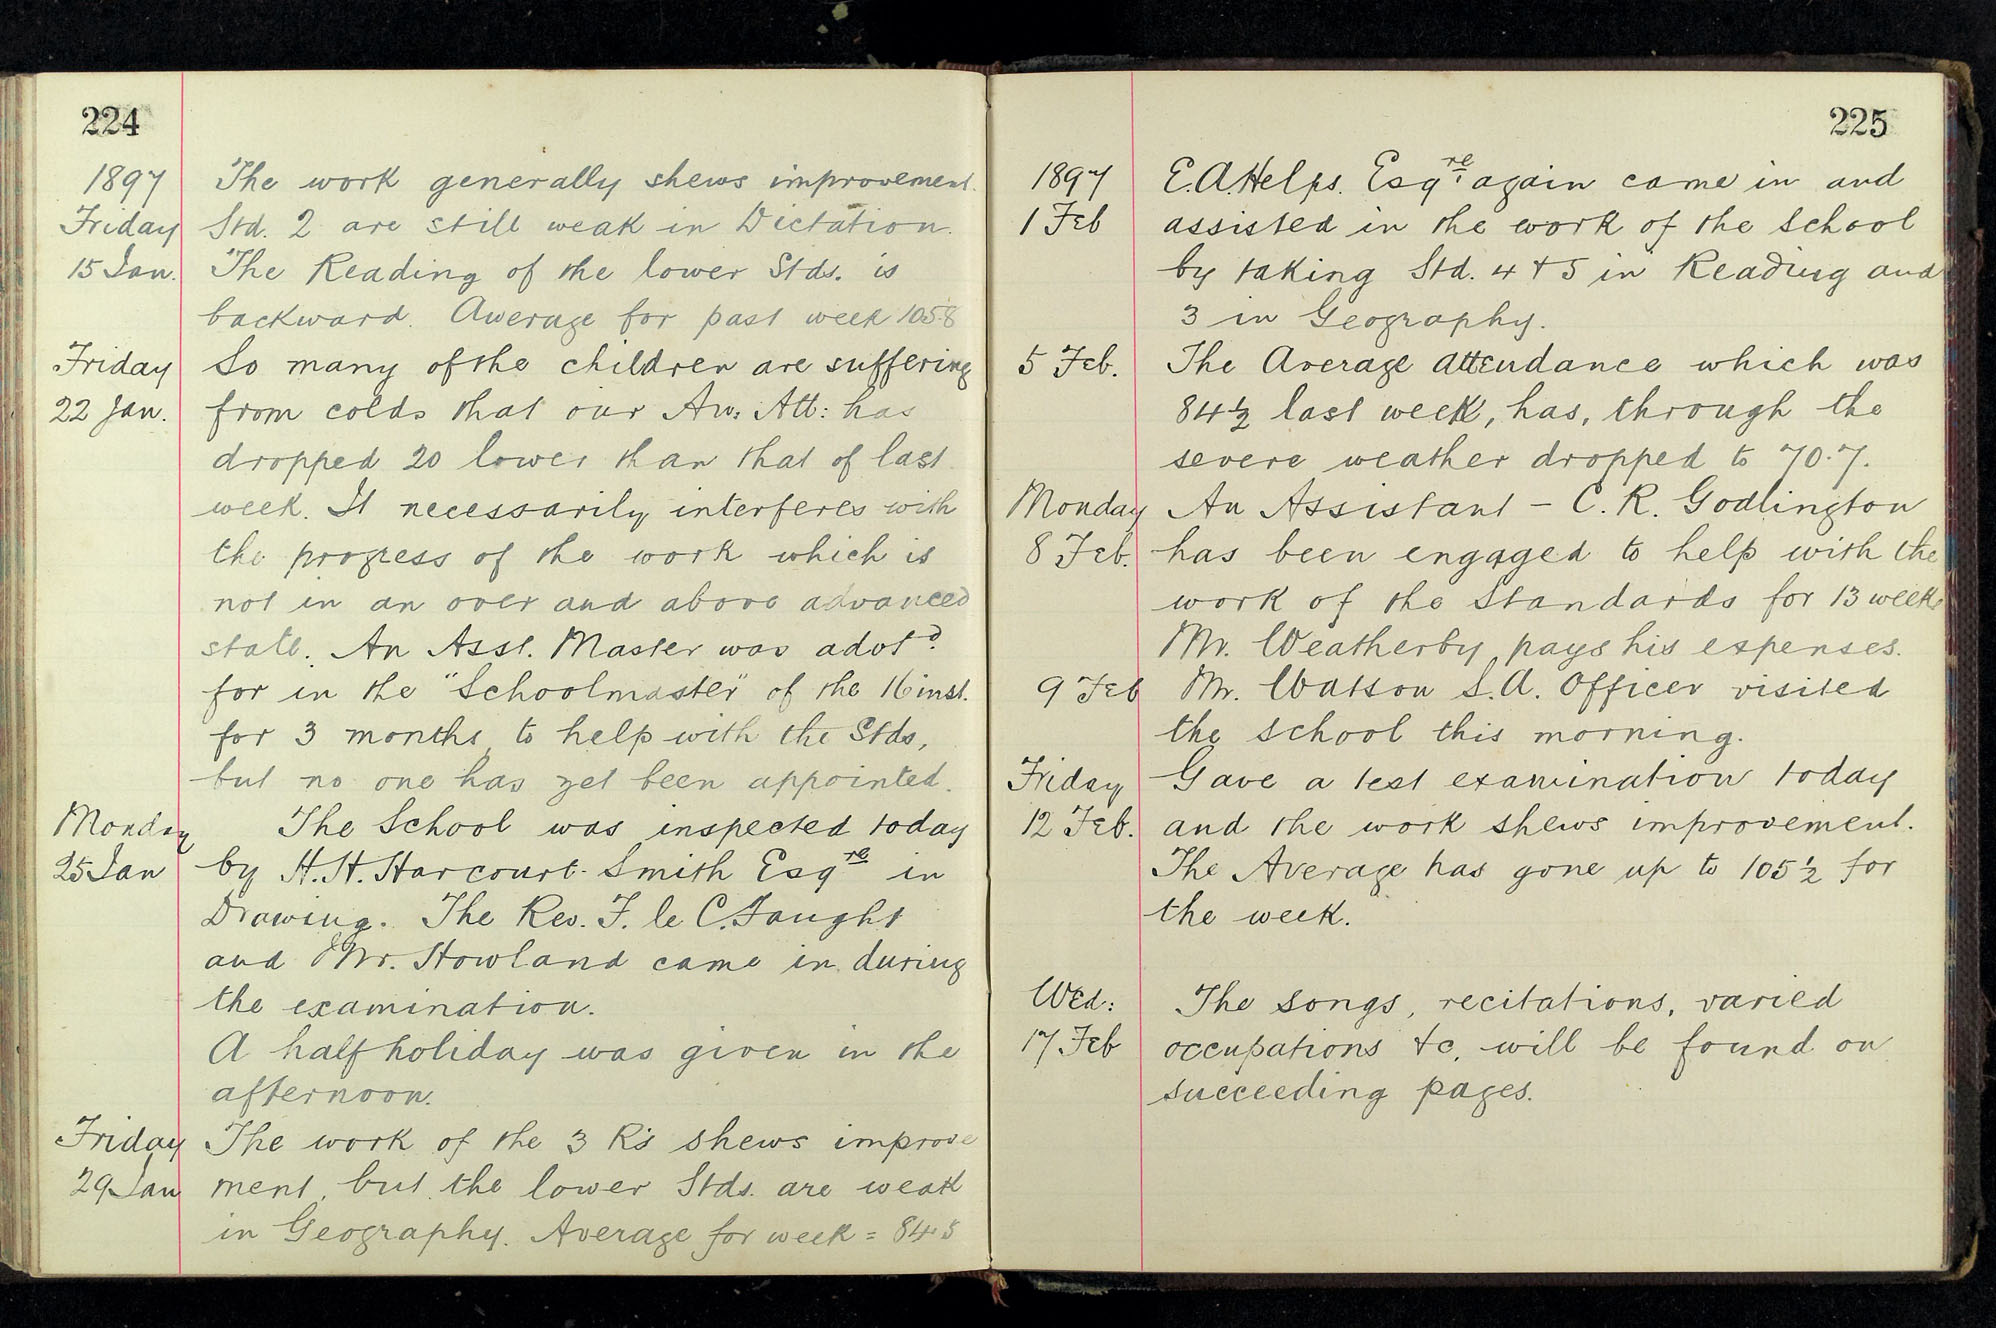 224
1897 The work generally shews improvement.
Friday Std. 2 are still weak in Dictation.
15 Jan. The Reading of the lower Stds. is
backward. Average for past week 105.8
Friday So many of the children are suffering
22 Jan. from colds that our Av: Att: has
dropped 20 lower than that of last
week. It necessarily interferes with
the progress of the work which is
not in an over and above advanced
state. An Asst. Master was advtd.
for in the "Schoolmaster" of the 16 inst.
for 3 months, to help with the Stds,
but no one has yet been appointed.
Monday The School was inspected today
25 Jan by H. H. Harcourt-Smith Esqre in
Drawing. The Rev. F. le C. Faught
and Mr. Howland came in during
the examination.
A half holiday was given in the
afternoon.
Friday The work of the 3 R's shews improve
29 Jan ment, but the lower Stds. are weak
in Geography. Average for week = 84.5
225
1897 E. A. Helps. Esqre. again came in and
1 Feb assisted in the work of the School
by taking Std. 4 + 5 in Reading and
3 in Geography.
5 Feb. The Average Attendance which was
84½ last week, has, through the
severe weather dropped to 70.7.
Monday An Assistant - C. R. Godlington
8 Feb. has been engaged to help with the
work of the Standards for 13 weeks
Mr. Weatherby pays his expenses.
9 Feb Mr. Watson S.A. Officer visited
the school this morning.
Friday Gave a test examination today
12 Feb. and the work shews improvement.
The Average has gone up to 105½ for
the week.
Wed: The songs, recitations, varied
17 Feb occupations &c, will be found on
succeeding pages.